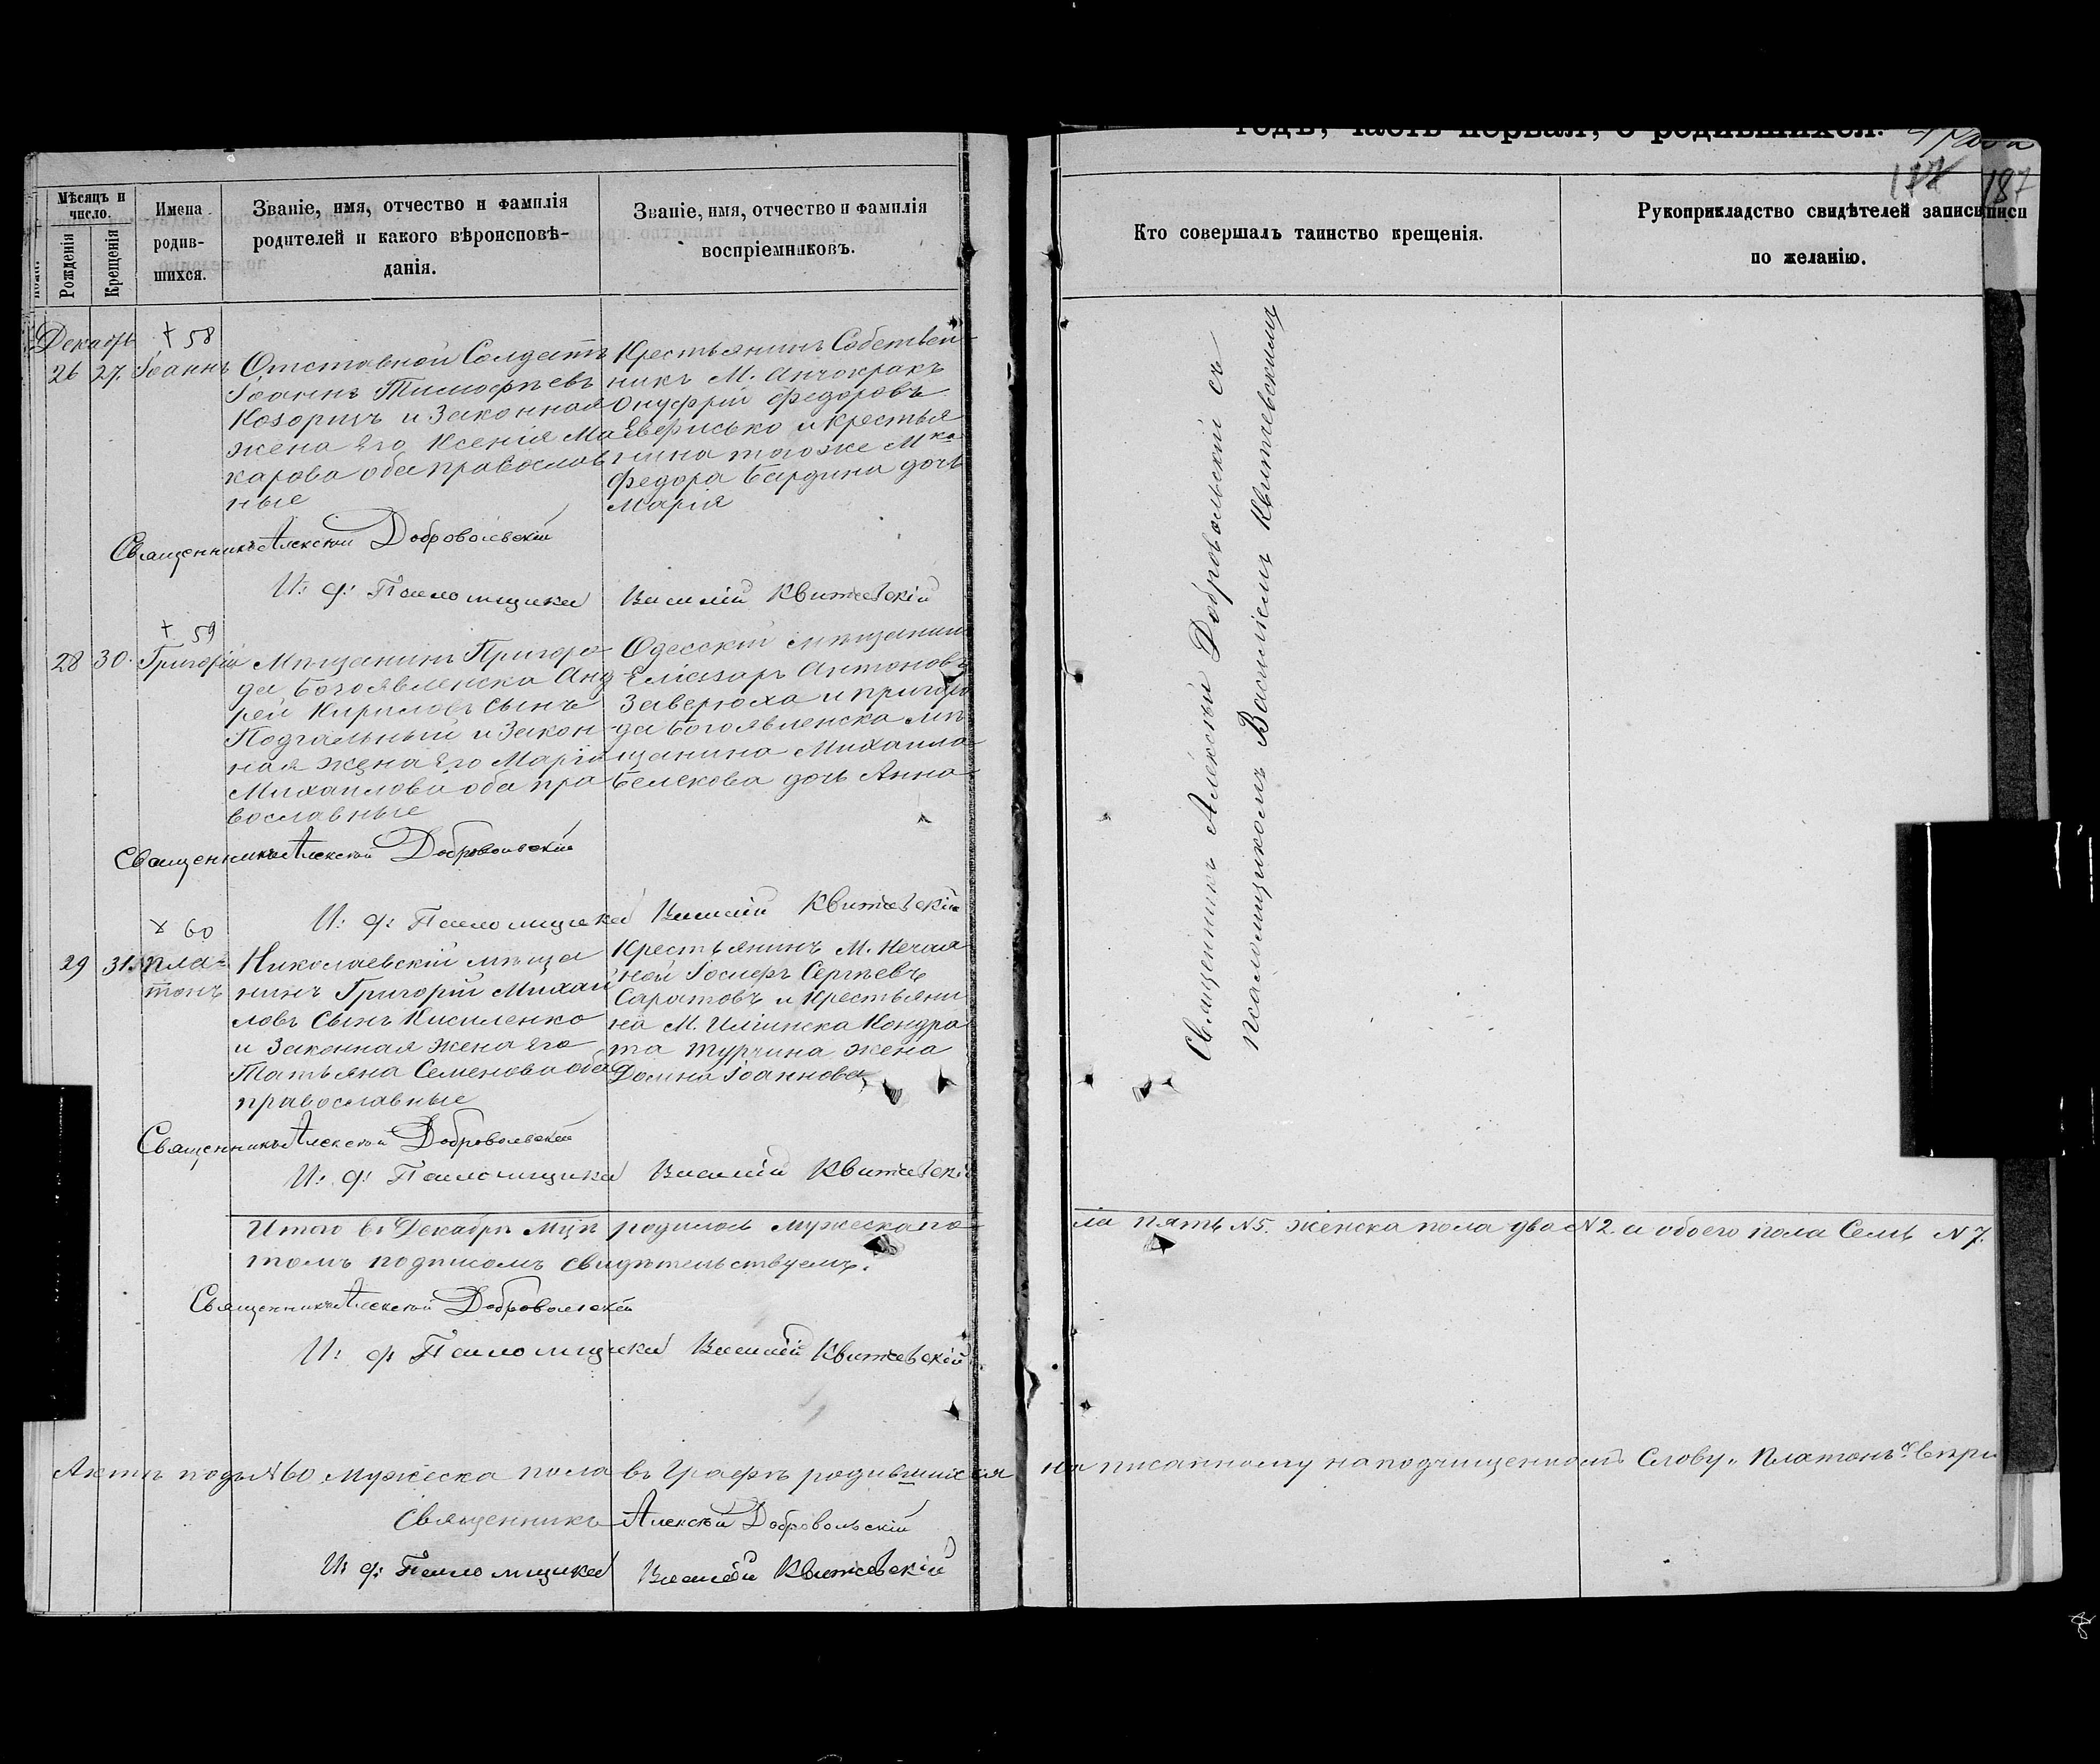 годъ, часть первая, о родившихся.
187
Мѣсяцъ и число.
Рожденія
Крещенія
Имена родив-шихся.
Званіе, имя, отчество и фамилія
родителей и какого вѣроисповѣ-
данія.
Званіе, имя, отчество и фамилія
воспріемниковъ.
Кто совершалъ таинство крещенія.
Рукоприкладство свидѣтелей записи
по желанію.
Декабрь
58
26 27. Іоаннъ
Отставной Солдатъ
Іоаннъ Тимофѣевъ
Козоризъ и Законная
жена Его Ксенія Ма
карова оба православ
ные
Крестьянинъ Собствен
никъ М. Анчокракъ
Онуфрій Федоровъ
и крестья
нина тогоже М-ка
Федора Бардина дочь
Марія
Священникъ Алексѣй Добровольскій
И. ф. Псаломщика Василій Квитчевскій
59
28 30. Григорій
Мѣщанинъ Пригоро
да Богоявленска Анд
рей Кириловъ Сынъ
Подгальный и Закон
ная жена Его Марія
Михаилова оба пра
вославные
Одесскій мѣщанинъ
Еліазаръ Антоновъ
Заверюха и пригоро
да Богоявленска мѣ
щанина Михаила
Белекова дочь Анна
Священникъ Алексѣй Добровольскій
И. ф. Псаломщика Василій Квитчевскій
60
29 31. Пла-
тонъ
Николаевскій мѣща
нинъ Григорій Михаи
ловъ Сынъ Кисиленко
и Законная жена Его
Татьяна Семенова оба
православные
Крестьянинъ М. Нечая
ной Іосифъ Сергѣевъ
Саратовъ и Крестьяни
на М. Ильинска Кондра
та Турчина жена
Домна Іоаннова
Священникъ Алексѣй Добровольскій
И. ф. Псаломщика Василій Квитчевскій
Священникъ Алексѣй Добровольскій съ
Псаломщикомъ Василіемъ Квитчевскимъ
Итого въ Декабрѣ Мцѣ родилось мужеска по
ла пять N5. женска пола два N2. а обоего пола Семь N7.
томъ подписомъ свидѣтельствуемъ.
Священникъ Алексѣй Добровольскій
И. ф. Псаломщика Василій Квитчевскій
Актѣ подъ N60 Мужеска пола въ Графѣ родившихся
на писанному на подчищенномъ Слову „Платонъ“ вѣри
Священникъ Алексѣй Добровольскій
И. ф. Псаломщика Василій Квитчевскій